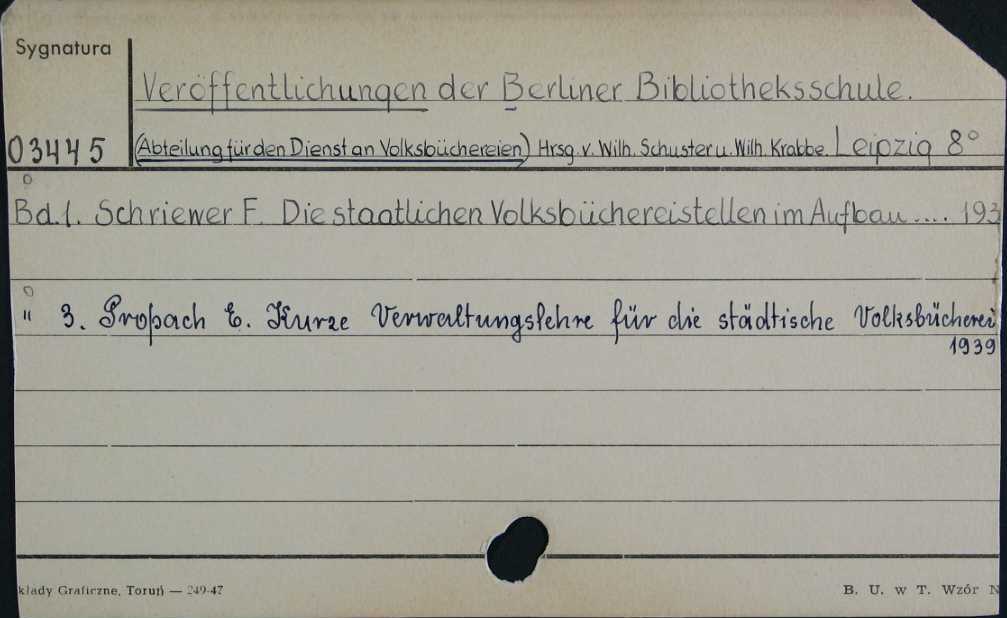 Sygnatura
Veröffentlichungen der Berliner Bibliotheksschule.
03445 (Abteilung für den Dienst an Volksbüchereien) Hrsg. v. Wilh. Schuster u. Wilh. Krabbe. Leipzig 8°
Bd. 1. Schriewer F. Die staatlichen Volksbüchereistellen im Aufbau .... 193
" 3. Proßach E. Kurze Verwaltungslehre für die städtische Volksbücherei
1939
kłady Graficzne, Toruń — 249-47 B. U. w T. Wzór N